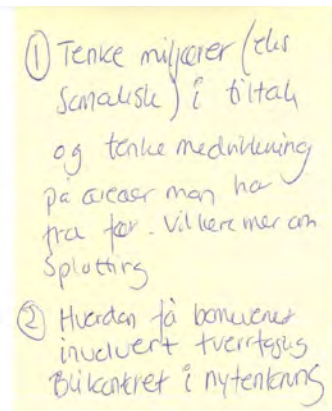 ① Tenke miljøer (eks
Somalisk) i tiltak
og tenke medvirkning
på arenaer man har
fra før. Vil lære mer om
Splotting
② Hvordan få barnevernet
involvert tverrfaglig
Bli konkret i nytenkning